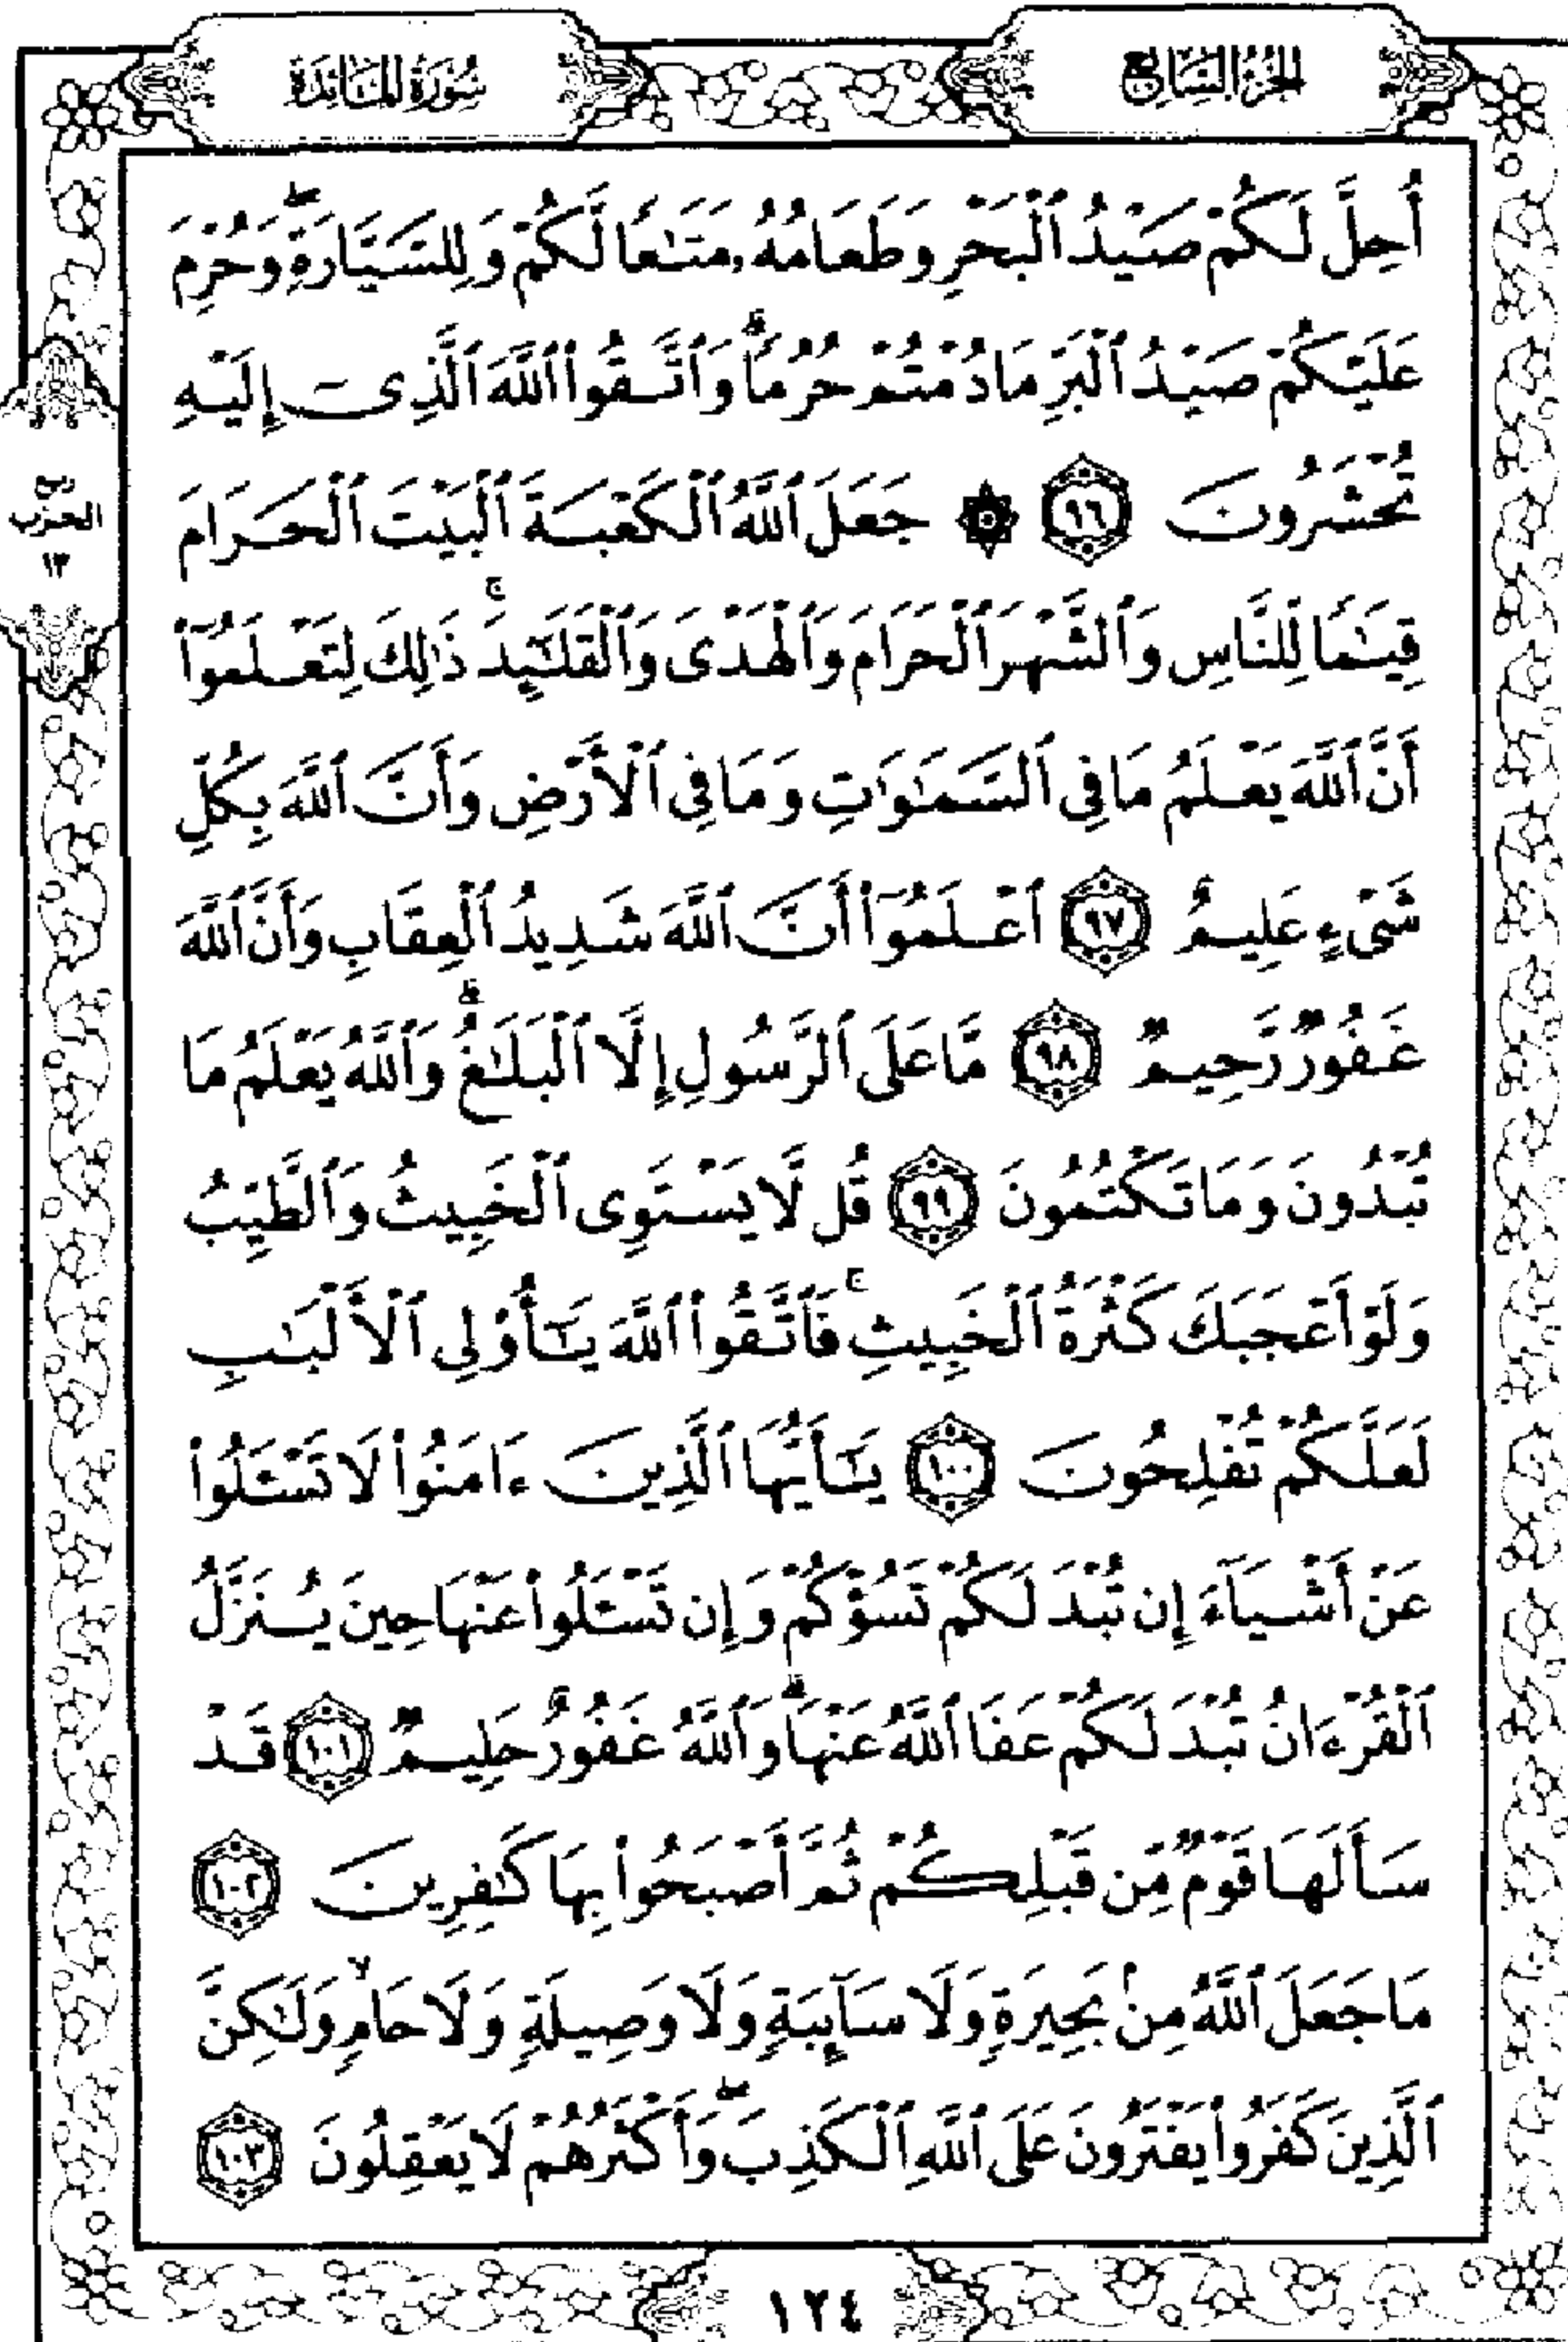 الجزء السابع
سورة المائدة
أُحِلَّ لَكُمْ صَيْدُ ٱلْبَحْرِ وَطَعَامُهُۥ مَتَٰعًا لَّكُمْ وَلِلسَّيَّارَةِۖ وَحُرِّمَ
عَلَيْكُمْ صَيْدُ ٱلْبَرِّ مَا دُمْتُمْ حُرُمًاۗ وَٱتَّقُوا۟ ٱللَّهَ ٱلَّذِىٓ إِلَيْهِ
تُحْشَرُونَ ٩٦ ۞ جَعَلَ ٱللَّهُ ٱلْكَعْبَةَ ٱلْبَيْتَ ٱلْحَرَامَ
قِيَٰمًا لِّلنَّاسِ وَٱلشَّهْرَ ٱلْحَرَامَ وَٱلْهَدْىَ وَٱلْقَلَٰٓئِدَۚ ذَٰلِكَ لِتَعْلَمُوٓا۟
أَنَّ ٱللَّهَ يَعْلَمُ مَا فِى ٱلسَّمَٰوَٰتِ وَمَا فِى ٱلْأَرْضِ وَأَنَّ ٱللَّهَ بِكُلِّ
شَىْءٍ عَلِيمٌ ٩٧ ٱعْلَمُوٓا۟ أَنَّ ٱللَّهَ شَدِيدُ ٱلْعِقَابِ وَأَنَّ ٱللَّهَ
غَفُورٌ رَّحِيمٌ ٩٨ مَّا عَلَى ٱلرَّسُولِ إِلَّا ٱلْبَلَٰغُۗ وَٱللَّهُ يَعْلَمُ مَا
تُبْدُونَ وَمَا تَكْتُمُونَ ٩٩ قُل لَّا يَسْتَوِى ٱلْخَبِيثُ وَٱلطَّيِّبُ
وَلَوْ أَعْجَبَكَ كَثْرَةُ ٱلْخَبِيثِۚ فَٱتَّقُوا۟ ٱللَّهَ يَٰٓأُو۟لِى ٱلْأَلْبَٰبِ
لَعَلَّكُمْ تُفْلِحُونَ ١٠٠ يَٰٓأَيُّهَا ٱلَّذِينَ ءَامَنُوا۟ لَا تَسْـَٔلُوا۟
عَنْ أَشْيَآءَ إِن تُبْدَ لَكُمْ تَسُؤْكُمْ وَإِن تَسْـَٔلُوا۟ عَنْهَا حِينَ يُنَزَّلُ
ٱلْقُرْءَانُ تُبْدَ لَكُمْ عَفَا ٱللَّهُ عَنْهَاۗ وَٱللَّهُ غَفُورٌ حَلِيمٌ ١٠١ قَدْ
سَأَلَهَا قَوْمٌ مِّن قَبْلِكُمْ ثُمَّ أَصْبَحُوا۟ بِهَا كَٰفِرِينَ ١٠٢
مَا جَعَلَ ٱللَّهُ مِنۢ بَحِيرَةٍ وَلَا سَآئِبَةٍ وَلَا وَصِيلَةٍ وَلَا حَامٍۙ وَلَٰكِنَّ
ٱلَّذِينَ كَفَرُوا۟ يَفْتَرُونَ عَلَى ٱللَّهِ ٱلْكَذِبَۖ وَأَكْثَرُهُمْ لَا يَعْقِلُونَ ١٠٣
ربع
الحزب
١٣
١٢٤